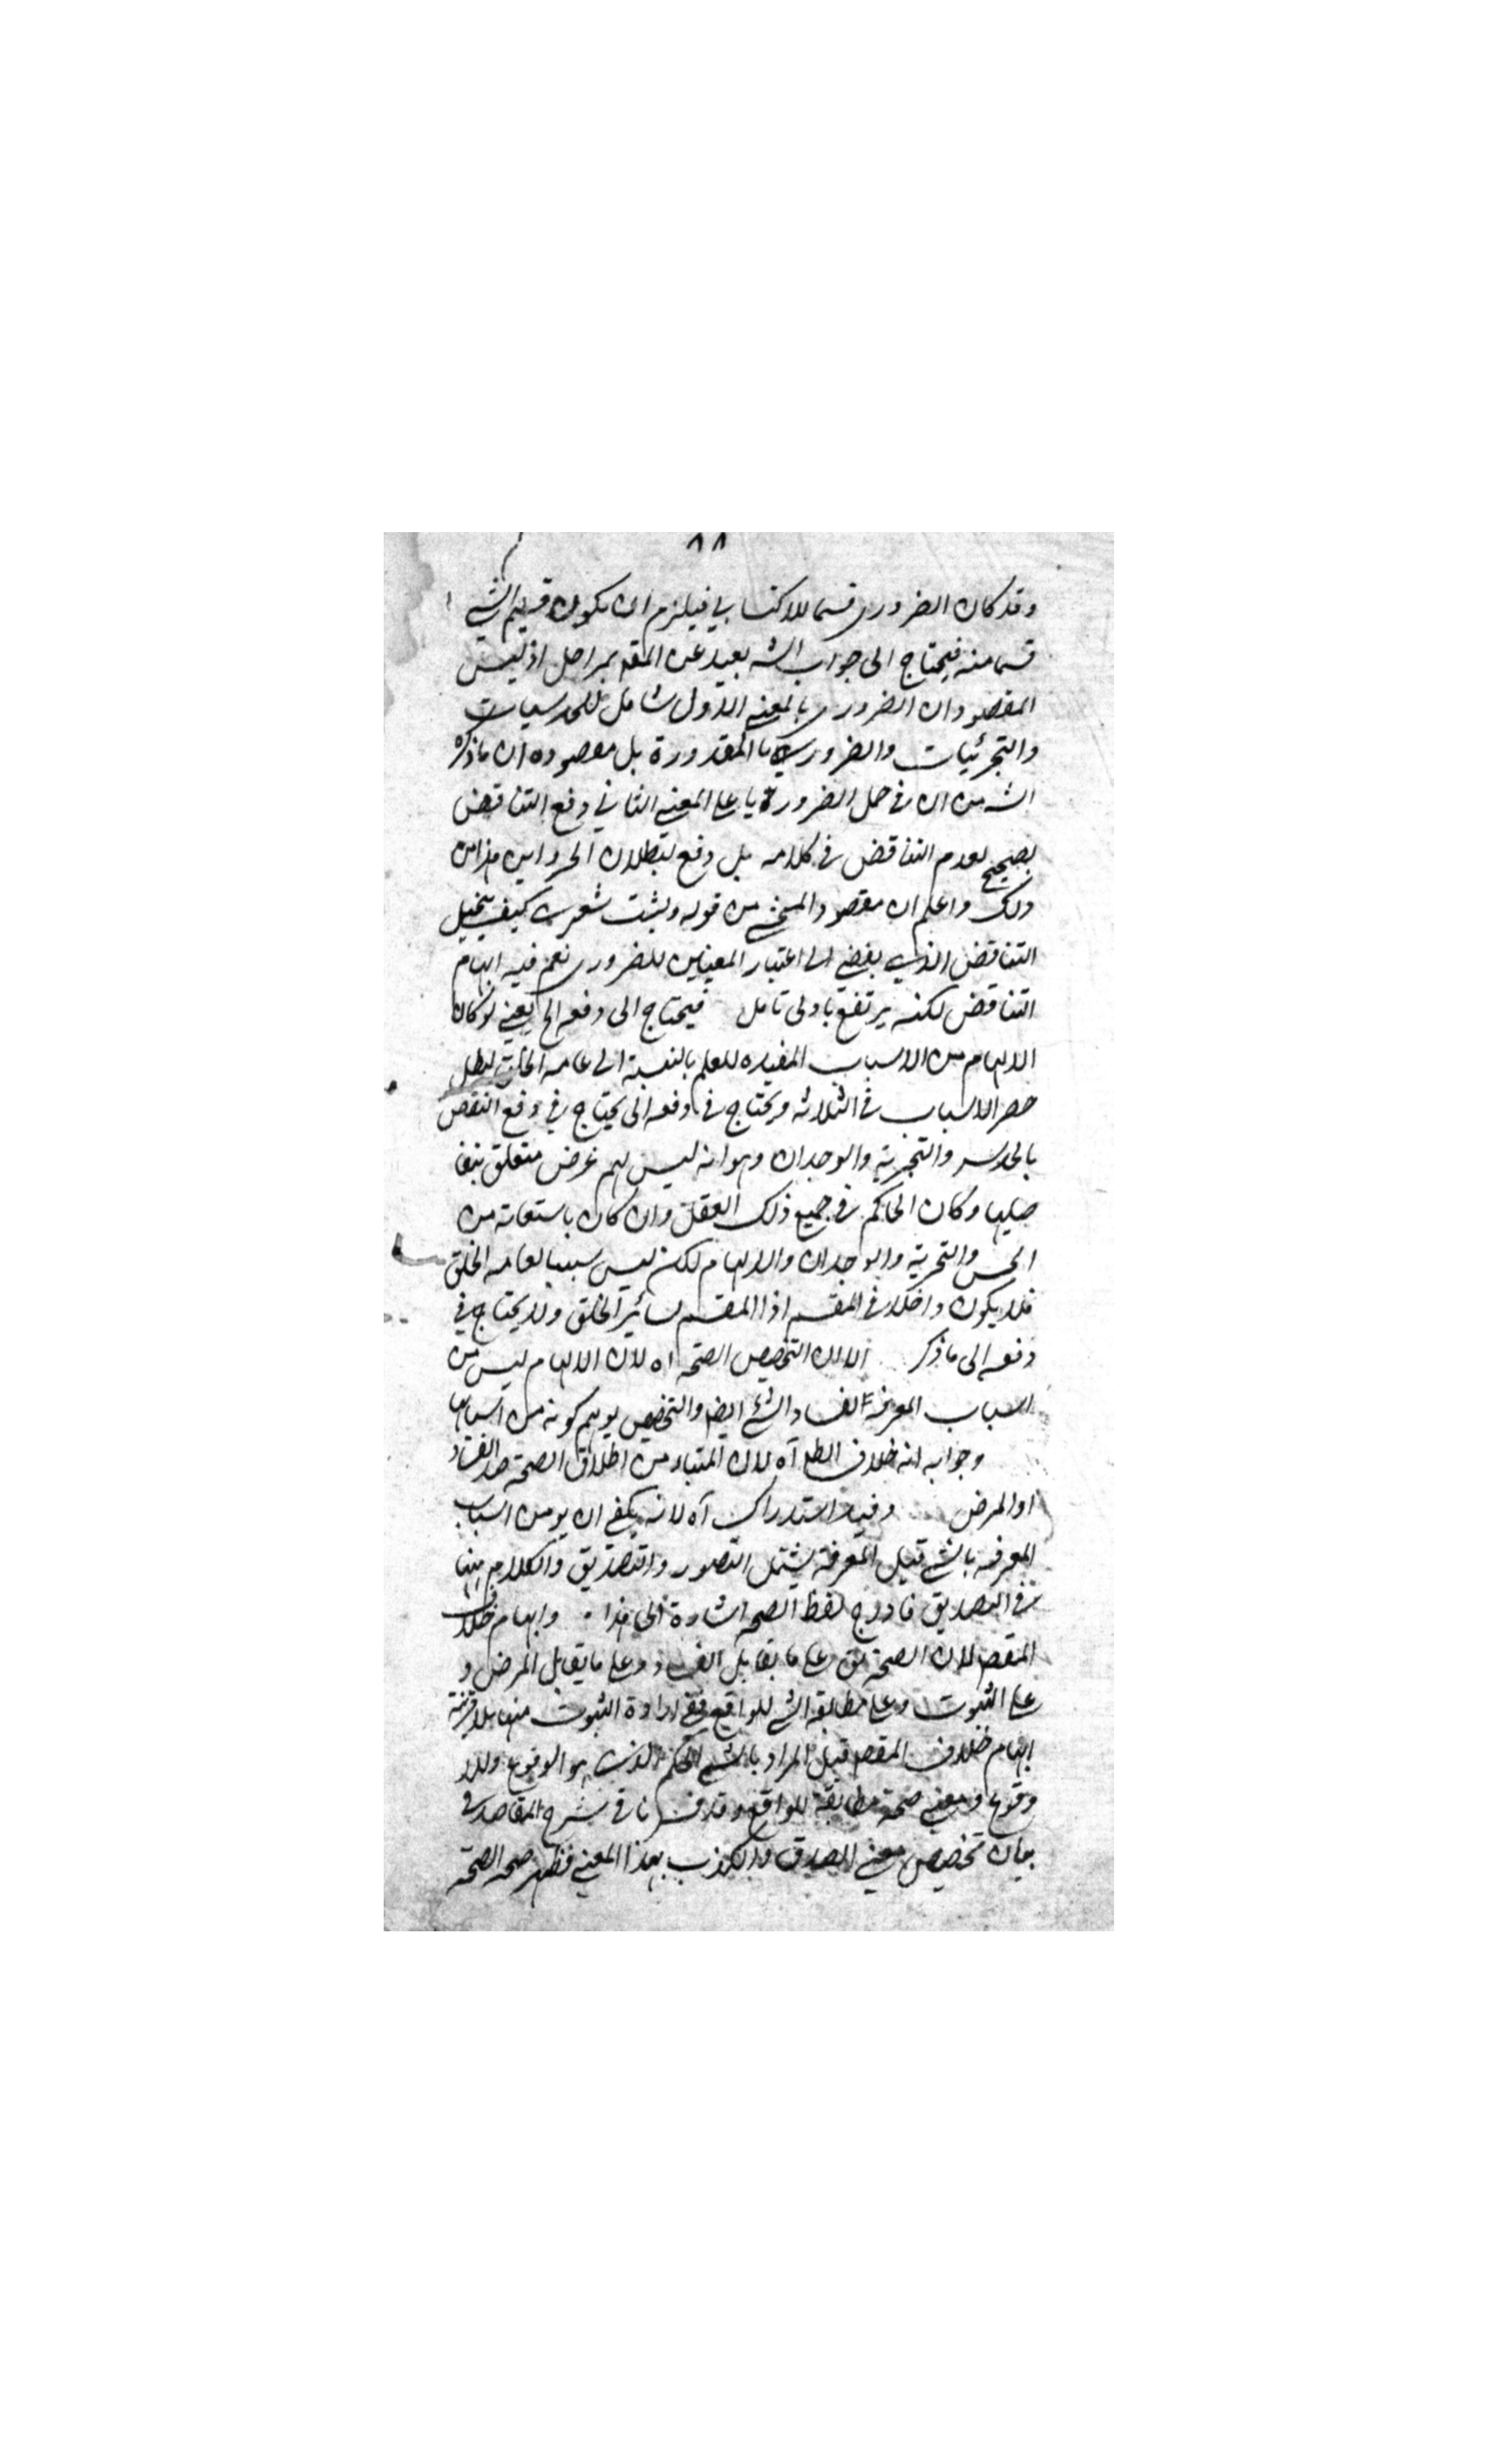 ٨٨
وقد كان الضروري قسما للاكتسابي فيلزم ان يكون قسيم الشئ
قسما منه فيحتاج الى جواب الشه بعيد عن المقص بمراحل اذ ليس
المقصود ان الضروري بالمعنى الاول شامل للحدسيات
والتجربيات والضروري المقدورة بل مقصوده ان ما ذكره
الشه من ان في حمل الضروري على المعنى الثاني دفع التناقض
بصحيح لعدم التناقض في كلامه بل دفع لبطلان الحصر واين هذا من
ذلك واعلم ان مقصود المحشي من قوله وليت شعري كيف يتخيل
التناقض الذي يفضي الى اعتبار المعنيين للضروري نعم فيه ايهام
التناقض لكنه يرتفع بادنى تامل فيحتاج الى دفعه الخ يعني لو كان
الالهام من الاسباب المفيده للعلم بالنسبة الى عامه الخلق لبطل
حصر الاسباب في الثلاثه ويحتاج في دفعه الى يحتاج في دفع النقض
بالحدس والتجربة والوجدان وهو انه ليس لهم غرض متعلق بتفا
صيلها وكان الحاكم في جميع ذلك العقل وان كان باستعانه من
الحس والتجربة والوجدان والالهام لكن ليس سببا لعامه الخلق
فلا يكون داخلا في المقسم اذا المقسم لسائر الخلق ولا يحتاج في
دفعه الى ما ذكر الا ان التخصيص الصحه اه لان الالهام ليس من
اسباب المعرفة لفساد الشئ ايضا والتخصيص يوهم كونه من اسبابها
وجوابه انه خلاف الظ آه لان المتبادر من اطلاق الصحة ضد الفساد
او المرض وفيه استدراك آه لانه يكفي ان يق من اسباب
المعرفه بالشئ قيل المعرفة يشتمل التصور والتصديق والكلام ههنا
في التصديق فادرج لفظ الصحه اشارة الى هذا . وايهام خلاف
المقص لان الصحة يق على ما يقابل الفساد وعلى ما يقابل المرض و
على الثبوت وعلى مطابقه الشئ للواقع ففي ارادة الثبوت منها بلا قرينة
ايهام خلاف المقص قيل المراد بالشئ الحكم الذي هو الوقوع واللا
وقوع ومعنى صحته مطابقة للواقع وقد في شرح المقاصد في
بيان تخصيص معنى الصدق والكذب بهذا المعنى فظهر صحه الصحة